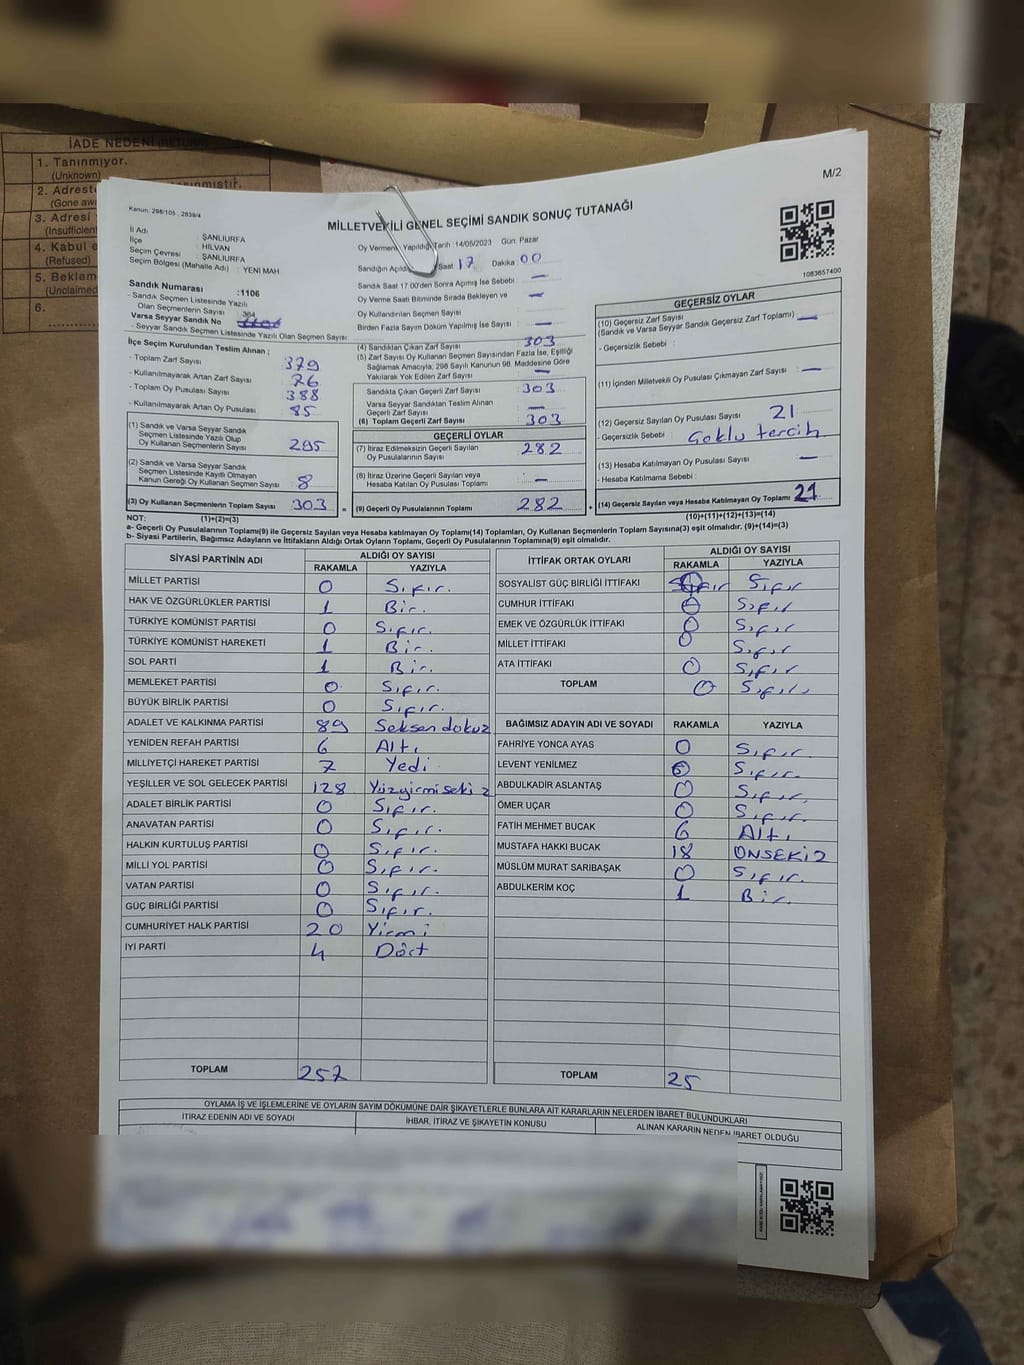 İADE NEDENİ (RETURN
1. Tanınmıyor.
(Unknown)
2. Adreste
(Gone awa
3. Adresi
(Insufficient
4. Kabul e
(Refused)
5. Beklem
(Unclaimed
6.
M/2
Kanun, 298/105 , 2839/4
MİLLETVEKİLİ GENEL SEÇİMİ SANDIK SONUÇ TUTANAĞI
İl Adı : ŞANLIURFA
İlçe : HİLVAN
Seçim Çevresi : ŞANLIURFA
Seçim Bölgesi (Mahalle Adı) : YENİ MAH
Sandık Numarası :1106
- Sandık Seçmen Listesinde Yazılı
Olan Seçmenlerin Sayısı : 364
Varsa Seyyar Sandık No
- Seyyar Sandık Seçmen Listesinde Yazılı Olan Seçmen Sayısı
İlçe Seçim Kurulundan Teslim Alınan ;
- Toplam Zarf Sayısı : 379
- Kullanılmayarak Artan Zarf Sayısı : 76
- Toplam Oy Pusulası Sayısı : 388
- Kullanılmayarak Artan Oy Pusulası : 85
(1) Sandık ve Varsa Seyyar Sandık
Seçmen Listesinde Yazılı Olup
Oy Kullanan Seçmenlerin Sayısı : 295
(2) Sandık ve Varsa Seyyar Sandık
Seçmen Listesinde Kayıtlı Olmayan
Kanun Gereği Oy Kullanan Seçmen Sayısı : 8
(3) Oy Kullanan Seçmenlerin Toplam Sayısı : 303
(1)+(2)=(3)
Oy Vermenin Yapıldığı Tarih : 14/05/2023 Gün: Pazar
Sandığın Açıldığı Saat 17 Dakika 00
Sandık Saat 17.00'den Sonra Açılmış İse Sebebi : —
Oy Verme Saati Bitiminde Sırada Bekleyen ve
Oy Kullandırılan Seçmen Sayısı : —
Birden Fazla Sayım Döküm Yapılmış İse Sayısı : —
(4) Sandıktan Çıkan Zarf Sayısı : 303
(5) Zarf Sayısı Oy Kullanan Seçmen Sayısından Fazla İse, Eşitliği
Sağlamak Amacıyla, 298 Sayılı Kanunun 98. Maddesine Göre
Yakılarak Yok Edilen Zarf Sayısı : —
Sandıkta Çıkan Geçerli Zarf Sayısı : 303
Varsa Seyyar Sandıktan Teslim Alınan
Geçerli Zarf Sayısı : —
(6) Toplam Geçerli Zarf Sayısı : 303
GEÇERLİ OYLAR
(7) İtiraz Edilmeksizin Geçerli Sayılan
Oy Pusulalarının Sayısı : 282
(8) İtiraz Üzerine Geçerli Sayılan veya
Hesaba Katılan Oy Pusulası Toplamı : —
= (9) Geçerli Oy Pusulalarının Toplamı : 282 +
1083657400
GEÇERSİZ OYLAR
(10) Geçersiz Zarf Sayısı
(Sandık ve Varsa Seyyar Sandık Geçersiz Zarf Toplamı) : —
- Geçersizlik Sebebi :
(11) İçinden Milletvekili Oy Pusulası Çıkmayan Zarf Sayısı : —
(12) Geçersiz Sayılan Oy Pusulası Sayısı : 21
- Geçersizlik Sebebi : Çoklu tercih
(13) Hesaba Katılmayan Oy Pusulası Sayısı : —
- Hesaba Katılmama Sebebi :
(14) Geçersiz Sayılan veya Hesaba Katılmayan Oy Toplamı : 21
(10)+(11)+(12)+(13)=(14)
NOT:
a- Geçerli Oy Pusulalarının Toplamı(9) ile Geçersiz Sayılan veya Hesaba Katılmayan Oy Toplamı(14) Toplamları, Oy Kullanan Seçmenlerin Toplam Sayısına(3) eşit olmalıdır. (9)+(14)=(3)
b- Siyasi Partilerin, Bağımsız Adayların ve İttifakların Aldığı Ortak Oyların Toplamı, Geçerli Oy Pusulalarının Toplamına(9) eşit olmalıdır.
SİYASİ PARTİNİN ADI ALDIĞI OY SAYISI
RAKAMLA YAZIYLA
MİLLET PARTİSİ 0 Sıfır.
HAK VE ÖZGÜRLÜKLER PARTİSİ 1 Bir.
TÜRKİYE KOMÜNİST PARTİSİ 0 Sıfır.
TÜRKİYE KOMÜNİST HAREKETİ 1 Bir.
SOL PARTİ 1 Bir.
MEMLEKET PARTİSİ 0 Sıfır.
BÜYÜK BİRLİK PARTİSİ 0 Sıfır.
ADALET VE KALKINMA PARTİSİ 89 Seksen dokuz
YENİDEN REFAH PARTİSİ 6 Altı
MİLLİYETÇİ HAREKET PARTİSİ 7 Yedi
YEŞİLLER VE SOL GELECEK PARTİSİ 128 Yüzyirmisekiz
ADALET BİRLİK PARTİSİ 0 Sıfır.
ANAVATAN PARTİSİ 0 Sıfır.
HALKIN KURTULUŞ PARTİSİ 0 Sıfır.
MİLLİ YOL PARTİSİ 0 Sıfır.
VATAN PARTİSİ 0 Sıfır.
GÜÇ BİRLİĞİ PARTİSİ 0 Sıfır.
CUMHURİYET HALK PARTİSİ 20 Yirmi
İYİ PARTİ 4 Dört
TOPLAM 257
İTTİFAK ORTAK OYLARI ALDIĞI OY SAYISI
RAKAMLA YAZIYLA
SOSYALİST GÜÇ BİRLİĞİ İTTİFAKI 0 Sıfır
CUMHUR İTTİFAKI 0 Sıfır
EMEK VE ÖZGÜRLÜK İTTİFAKI 0 Sıfır
MİLLET İTTİFAKI 0 Sıfır
ATA İTTİFAKI 0 Sıfır
TOPLAM 0 Sıfır
BAĞIMSIZ ADAYIN ADI VE SOYADI RAKAMLA YAZIYLA
FAHRİYE YONCA AYAS 0 Sıfır.
LEVENT YENİLMEZ 0 Sıfır.
ABDULKADİR ASLANTAŞ 0 Sıfır.
ÖMER UÇAR 0 Sıfır.
FATİH MEHMET BUCAK 6 Altı
MUSTAFA HAKKI BUCAK 18 ONSEKİZ
MÜSLÜM MURAT SARIBAŞAK 0 Sıfır.
ABDULKERİM KOÇ 1 Bir.
TOPLAM 25
OYLAMA İŞ VE İŞLEMLERİNE VE OYLARIN SAYIM DÖKÜMÜNE DAİR ŞİKAYETLERLE BUNLARA AİT KARARLARIN NELERDEN İBARET BULUNDUKLARI
İTİRAZ EDENİN ADI VE SOYADI İHBAR, İTİRAZ VE ŞİKAYETİN KONUSU ALINAN KARARIN NEDEN İBARET OLDUĞU